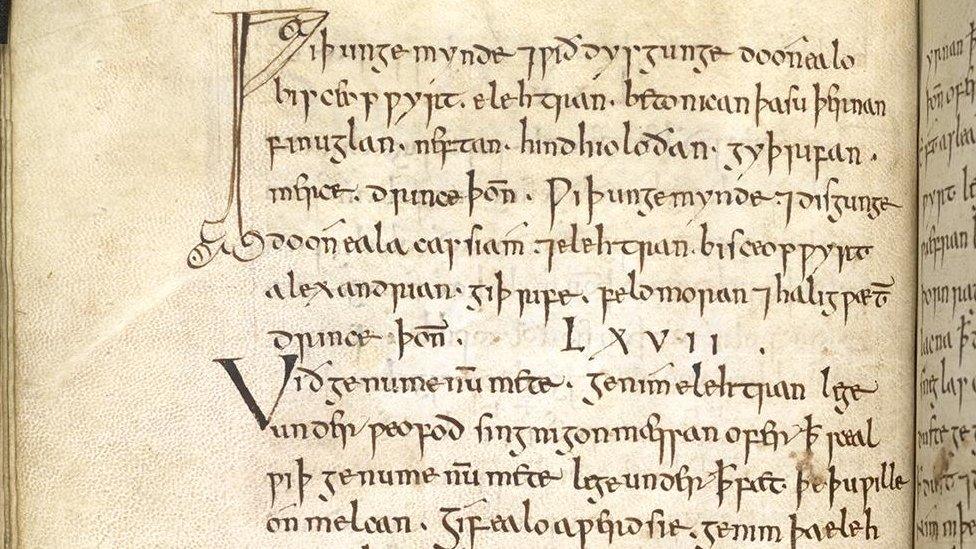 Ƿiþ ungemynde ⁊ ƿið dysgunge do on ealo
bisceopƿyrt · elehtrian · betonican þa suþernan
finuglan · neftan · hindhioloðan · gyþrifan ·
merce · drince þoñ · Ƿiþ ungemynde ⁊ disgunge
do on eala cassiam ⁊ elehtrian · bisceopƿyrt
alexandrian · giþrife · felomoran ⁊ haligƿæt̄
drince þoñ · LXVII ·
Við genumenū mete · genim elehtrian lege
under ƿeofod sing nigon mæssan ofer ꝥ sceal
ƿiþ genumenū mete lege under ꝥ fæt þe þu ƿille
on melcan · Gif ealo aƿerd sie · genim þa eleh